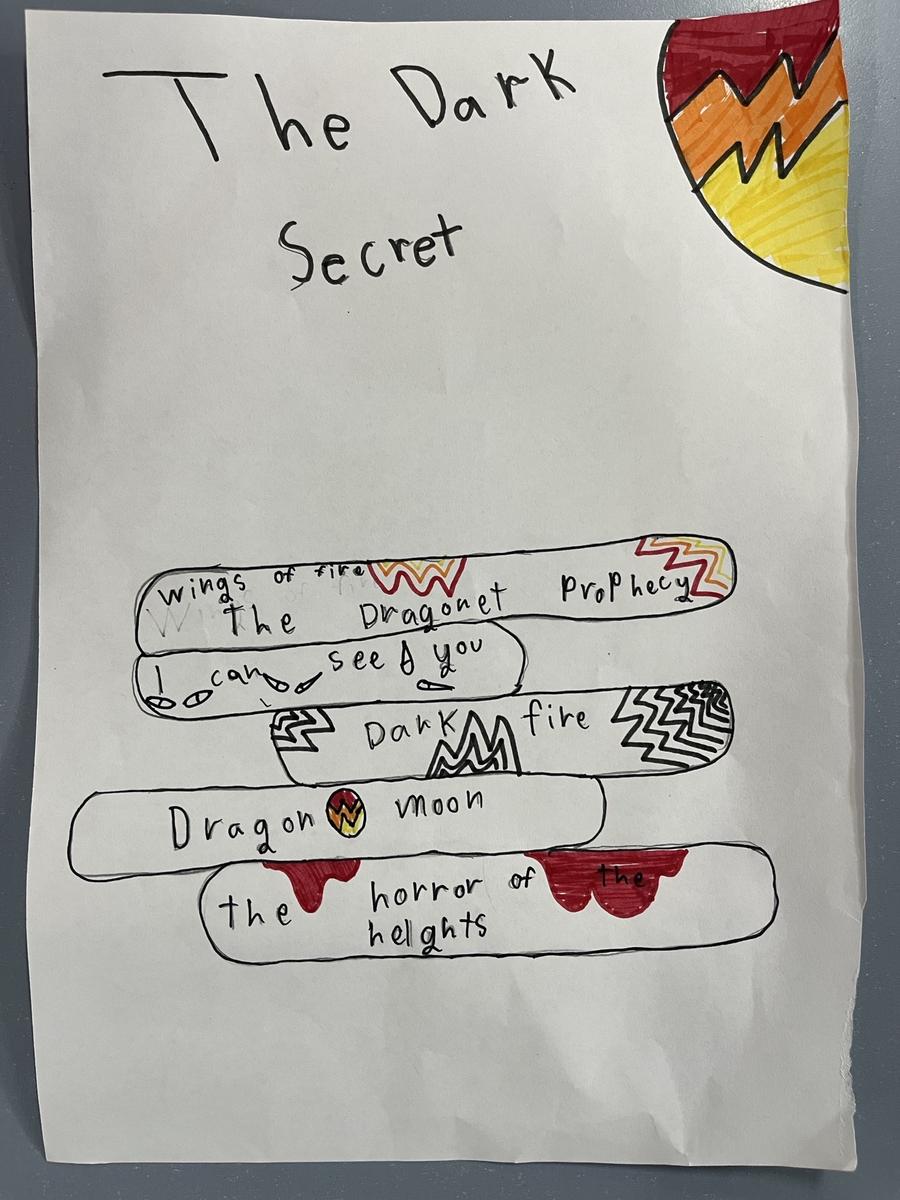 The Dark
Secret
wings of fire
The Dragonet Prophecy
I can see you
Dark fire
Dragon moon
the horror of the
heights